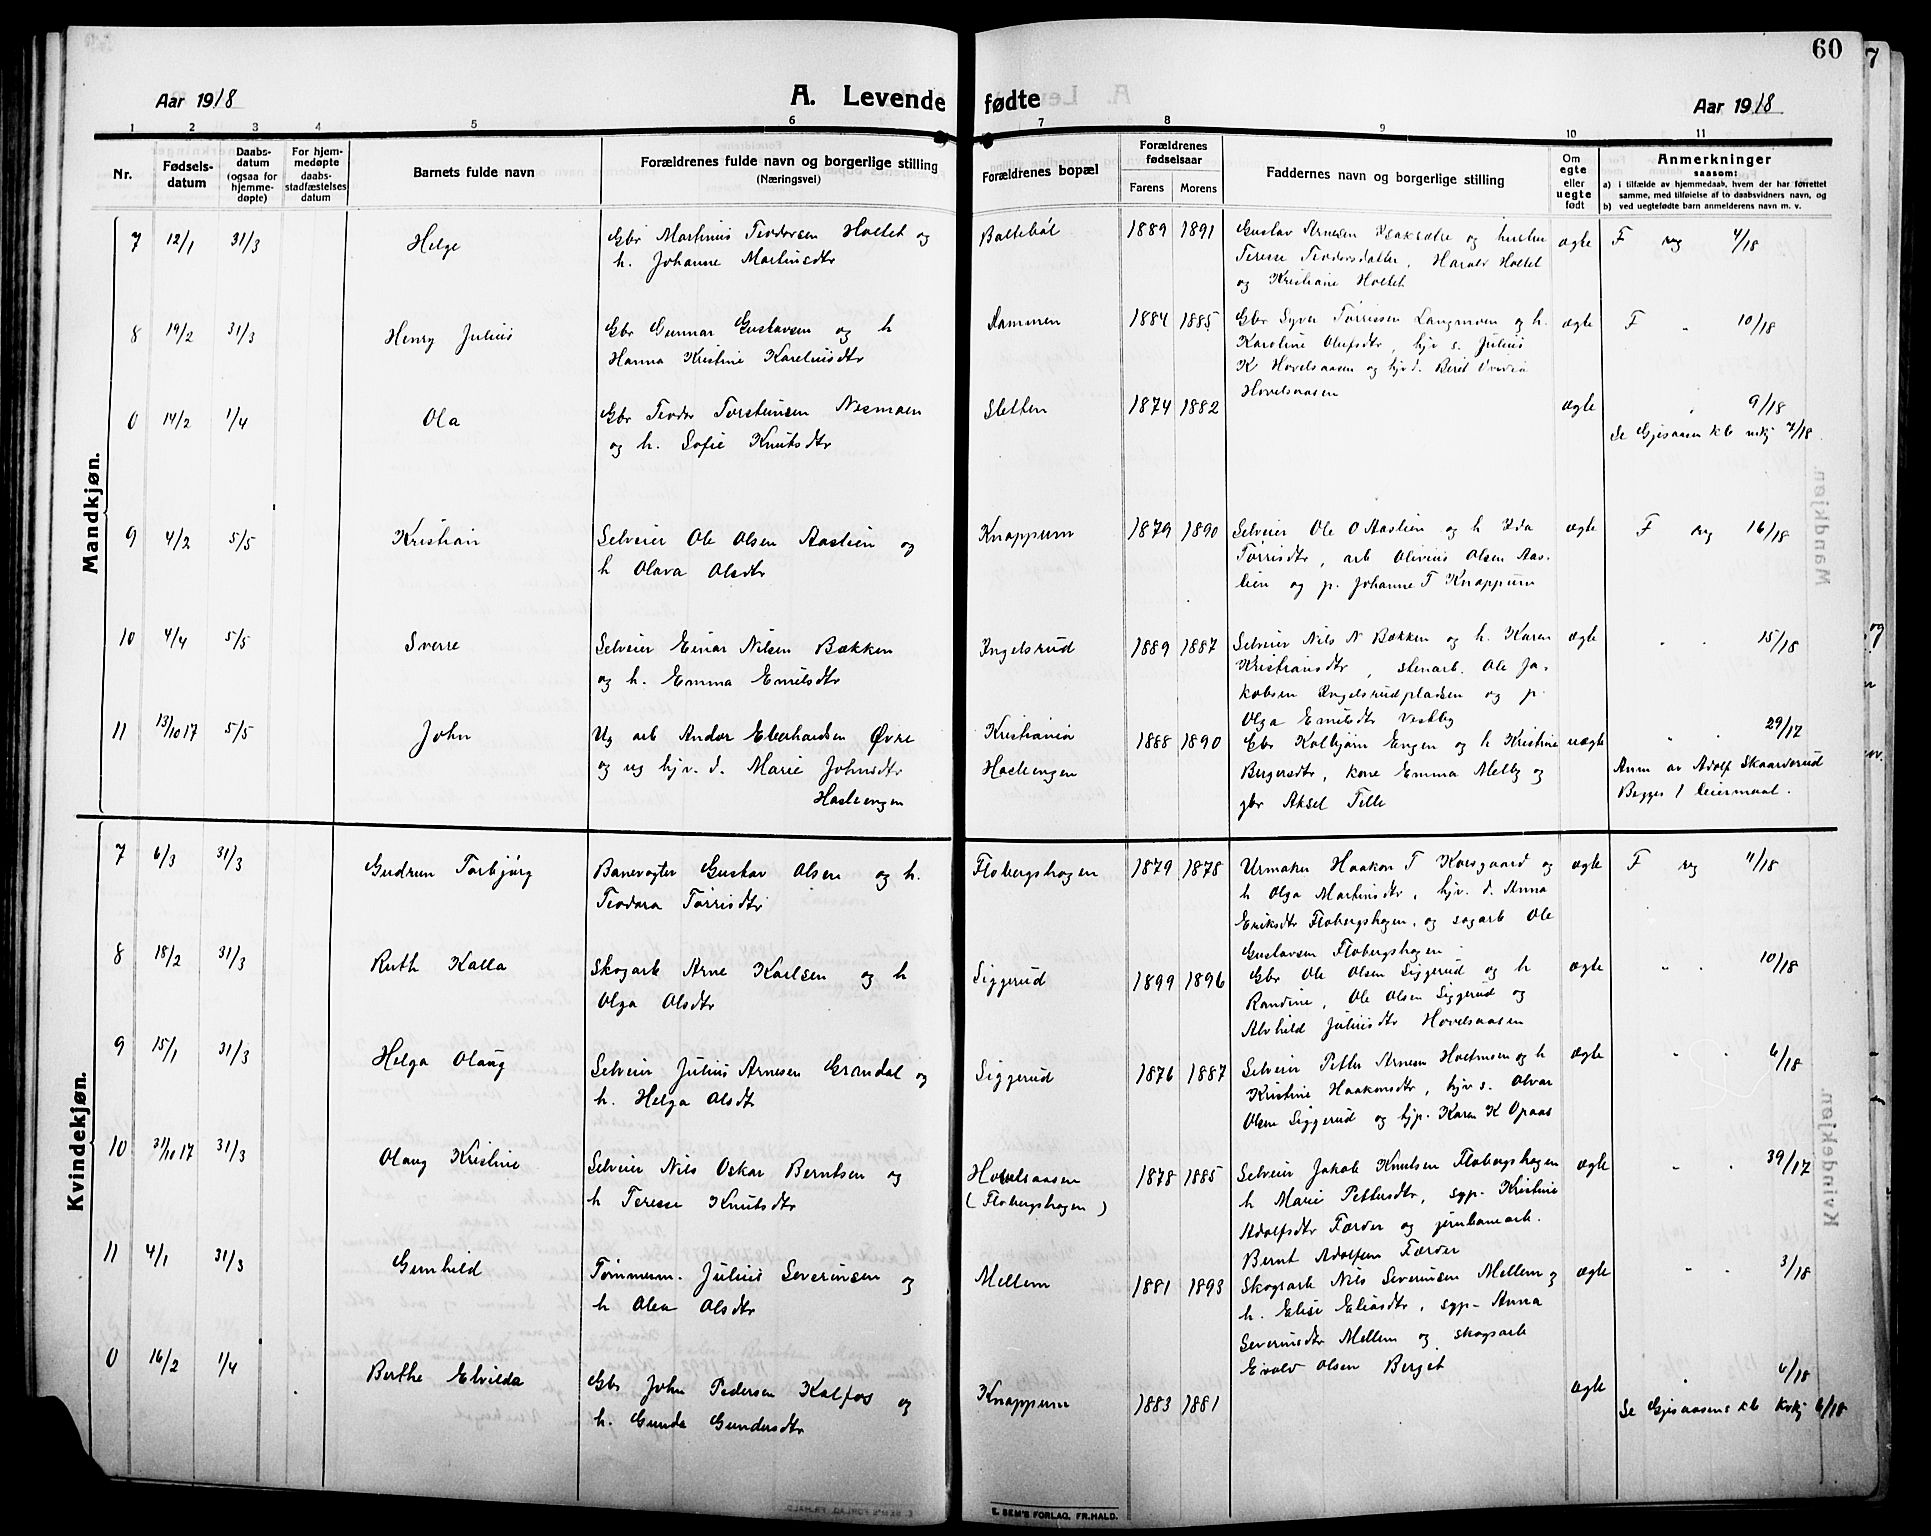 60
Aar 1918
A. Levende fødte
Aar 1918
1 2 3 4 5 6 7 8 9 10 11
Nr.
Fødsels-
datum
Daabs-
datum
(ogsaa for
hjemme-
døpte)
For hjem-
medøpte
daabs-
stadfæstelses
datum
Barnets fulde navn
Forældrenes fulde navn og borgerlige stilling
(Næringsvei)
Forældrenes bopæl
Forældrenes
fødselsaar
Farens Morens
Faddernes navn og borgerlige stilling
Om
egte
eller
uegte
født
Anmerkninger
saasom:
a) i tilfælde av hjemmedaab, hvem der har forrettet
samme, med tilføielse af to daabsvidners navn, og
b) ved uegtefødte barn anmelderens navn m. v.
Mandkjøn.
7 12/1 31/3 Helge
Gbr Martinius Teodorsen Holtet og
h. Johanne Martinsdtr
Baltebøl 1889 1891
Gustav Arnesen Isaksætre og hustru
Terese Teodorsdatter, Harald Holtet
og Kristiane Holtet
ægte F reg 4/18
8 19/2 31/3 Henry Julius
Gbr Gunnar Gustavsen og h
Hanna Kristine Kareliusdtr
Kammen 1884 1885
Gbr Syver Tørrissen Langmoen og h.
Karoline Olufsdtr, hjv s. Julius
K Hovelsaasen og hjv d. Berit Ovidia
Hovelsaasen
ægte F " 10/18
0 14/2 1/4 Ola
Gbr Teodor Torsteinsen Nesmoen
og h. Sofie Knutsdtr
Sletten 1874 1882 ægte " 9/18
Se Gjesaasen kb mkj 7/18.
9 4/2 5/5 Kristian
Selveier Ole Olsen Aaslien og
h Olava Olsdtr
Knappum 1879 1890
Selveier Ole O Aaslien og h Ida
Tørrisdtr, arb Olivius Olsen Aas-
lien og p. Johanne T Knappum
ægte F reg 16/18
10 4/4 5/5 Sverre
Selveier Einar Nilsen Bækken
og h. Emma Emilsdtr
Ingelsrud 1889 1887
Selveier Nils N Bækken og h. Karen
Kristiansdtr, stenarb. Ole Ja-
kobsen Ingelsrudpladsen og p.
Olga Emilsdtr Vestby
ægte " " 15/18
11 13/10 17 5/5 John
Ug arb Andor Eberhardsen Øvre
og ug hjv. d. Marie Johnsdtr
Haslengen
Kristiania
Haslengen
1888 1890
Gbr Kolbjørn Engen og h Kristine
Bergersdtr, kone Emma Melby og
gbr Aksel Telle
uægte " " 29/17
Anm av Adolf Skaarderud
Begges 1 leiermaal.
Kvindekjøn.
7 6/3 31/3 Gudrun Torbjørg
Banevogter Gustav Olsen og h.
Teodora Tørrisdtr
Flobergshagen 1879 1878
Urmaker Haakon T Korsgaard og
h Olga Martinsdtr, hjv. d. Anna
Eriksdtr Flobergshagen, og sagarb Ole
Gustavsen Flobergshagen
ægte F reg 11/18
8 18/2 31/3 Ruth Kalla
Skogarb Arne Karlsen og h
Olga Olsdtr
Siggerud 1899 1896
Gbr Ole Olsen Siggerud og h
Randine, Ole Olsen Siggerud og
Alvhild Juliusdtr Hovelsaasen
ægte " " 10/18
9 15/1 31/3 Helga Olaug
Selveier Julius Arnesen Grandal og
h. Helga Olsdtr
Siggerud 1876 1887
Selveier Petter Arnesen Holtmoen og h
Kristine Haakonsdtr, hjv s. Olvar
Olsen Siggerud og hjp. Karen K Opaas
ægte " " 6/18
10 31/10 17 31/3 Olaug Kristine
Selveier Nils Oskar Berntsen og
h Terese Knutsdtr
Hovelsaasen
(Flobergshagen)
1878 1885
Selveier Jakob Knutsen Flobergshagen
h Marie Pettersdtr, syp. Kristine
Adolfsdtr Færder og jernbanearb.
Bernt Adolfsen Færder
ægte " " 39/17
11 4/1 31/3 Gunhild
Tømmerm. Julius Severinsen og
h Olea Olsdtr
Mellem 1881 1893
Skogsarb Nils Severinsen Mellem og
h. Elise Eliasdtr, syp- Anna
Severinsdtr Mellem og skogsarb
Evald Olsen Berget
ægte " " 3/18
0 16/2 1/4 Berthe Elvilda
Gbr John Pedersen Kalfos og
h. Gunda Gundersdtr
Knappum 1883 1881 ægte " 6/18
Se Gjesaasens kb kvkj 6/18
E. SEM'S FORLAG, FR.HALD.